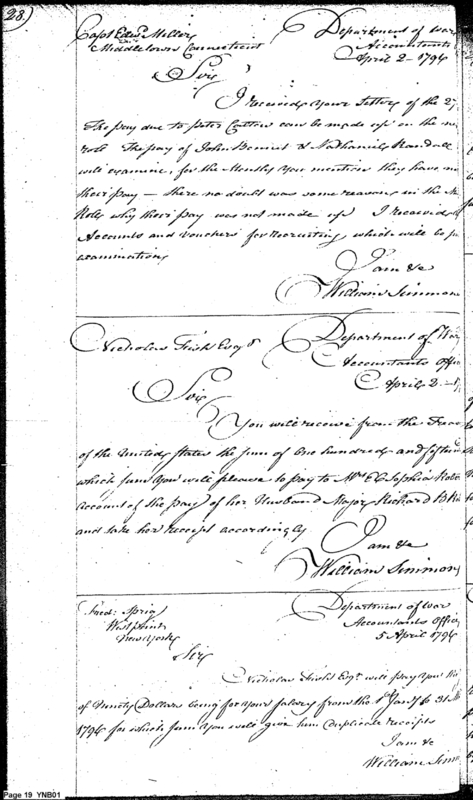 28.)
Capt Edwd Miller
Middletown Connecticut
Department of War
Accountants
April 2 - 1794
Sir
I received your Letter of the 27
The pay due to Peter can be made up on the
roll The pay of John Bennet & Nathaniel Randall
will examine, for the Months you mention they have
their pay - there no doubt was some reasons in the
Rolls why their pay was not made up I received
Accounts and vouchers for Recruiting which will be
examination
I am &c
William Simmons
Nicholas Fish Esqr
Department of War
Accountants Office
April 2 -
Sir
You will receive from the
of the United States the sum of One hundred and fifteen
which sum you will please to pay to Mrs Sophia
account of the pay of her Husband Major Richard B
and take her receipt accordingly
I am &c
William Simmons
Fred: Sprig
West point
New York
Department of War
Accountants Office
5 April 1794
Sir
Nicholas Fish Esqr will pay you the
of Ninety Dollars being for your salary from the 1 Jany to 31
1794 for which sum you will give him duplicate receipts
I am &c
William Simm
Page 19 YNB01